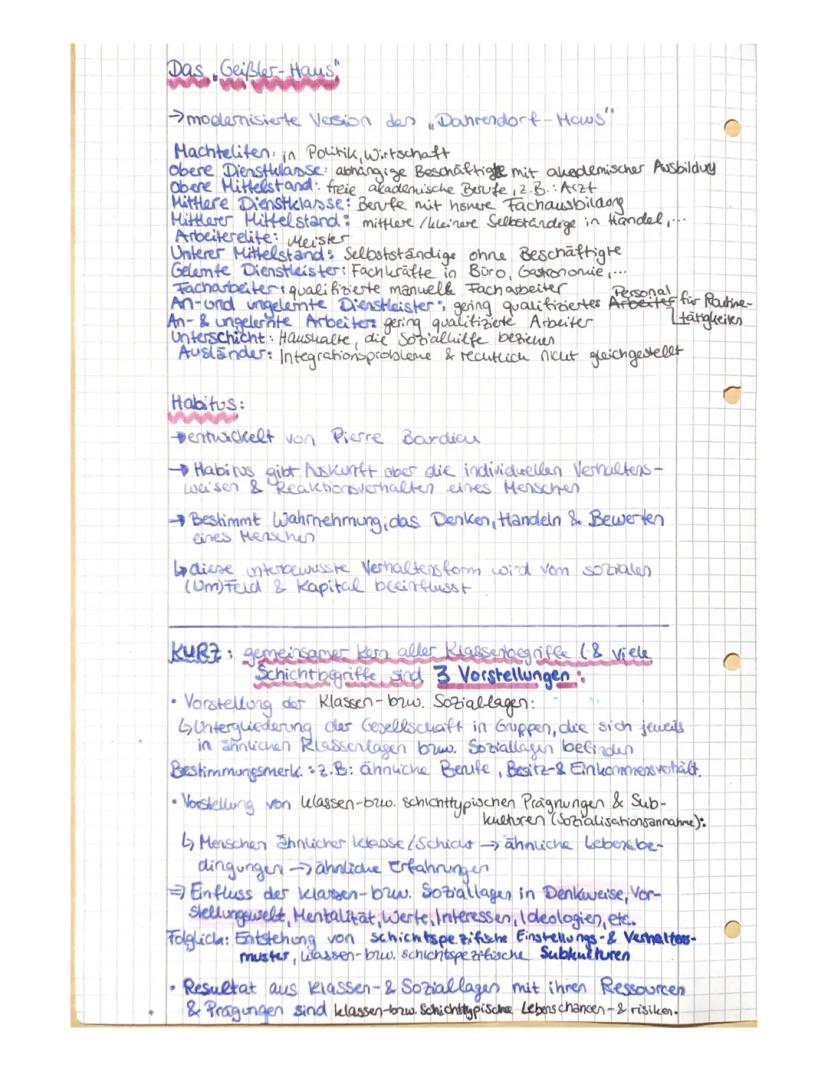 Das „Geißler-Haus"
→ modernisierte Version des „Dahrendorf-Haus"
Machteliten: in Politik, Wirtschaft
obere Dienstklasse: abhängige Beschäftigte mit akademischer Ausbildung
obere Mittelstand: freie akademische Berufe, z.B.: Arzt
Mittlere Dienstklasse: Berufe mit höhere Fachausbildung
Mittlerer Mittelstand: mittlere/kleinere Selbständige in Handel,...
Arbeiterelite: Meister
Unterer Mittelstand: Selbstständige ohne Beschäftigte
Gelernte Dienstleister: Fachkräfte in Büro, Gastronomie,...
Facharbeiter: qualifizierte manuelle Facharbeiter
An-und ungelernte Dienstleister: gering qualifiziertes Arbeiter Personal für Routine-
tätigkeiten
An- & ungelernte Arbeiter: gering qualifizierte Arbeiter
Unterschicht: Haushalte, die Sozialhilfe beziehen
Ausländer: Integrationsprobleme & rechtlich nicht gleichgestellt
Habitus:
→ entwickelt von Pierre Bardieu
→ Habitus gibt Auskunft über die individuellen Verhaltens-
weisen & Reaktionsverhalten eines Menschen
→ Bestimmt Wahrnehmung, das Denken, Handeln & Bewerten
eines Menschen
↳ diese unterbewusste Verhaltensform wird vom sozialen
(Um)Feld & Kapital beeinflusst
KURZ: gemeinsamer Kern aller Klassenbegriffe (& viele
Schichtbegriffe sind 3 Vorstellungen:
• Vorstellung der Klassen-bzw. Soziallagen:
↳ Untergliederung der Gesellschaft in Gruppen, die sich jeweils
in ähnlichen Klassenlagen bzw. Soziallagen befinden
Bestimmungsmerk.: z.B: ähnliche Berufe, Besitz-& Einkommensverhält.
• Vorstellung von klassen-bzw. schichttypischen Prägnungen & Sub-
kulturen (Sozialisationsannahme):
↳ Menschen ähnlicher Klasse/Schicht → ähnliche Lebensbe-
dingungen → ähnliche Erfahrungen
⇒ Einfluss der klassen-bzw. Soziallagen in Denkweise, Vor-
stellungswelt, Mentalität, Werte, Interessen, Ideologien, etc.
Folglich: Entstehung von schichtspezifische Einstellungs-& Verhaltens-
muster, klassen-bzw. schichtspezifische Subkulturen
• Resultat aus Klassen-& Soziallagen mit ihren Ressourcen
& Prägungen sind klassen-bzw. schichttypische Lebenschancen-& risiken.